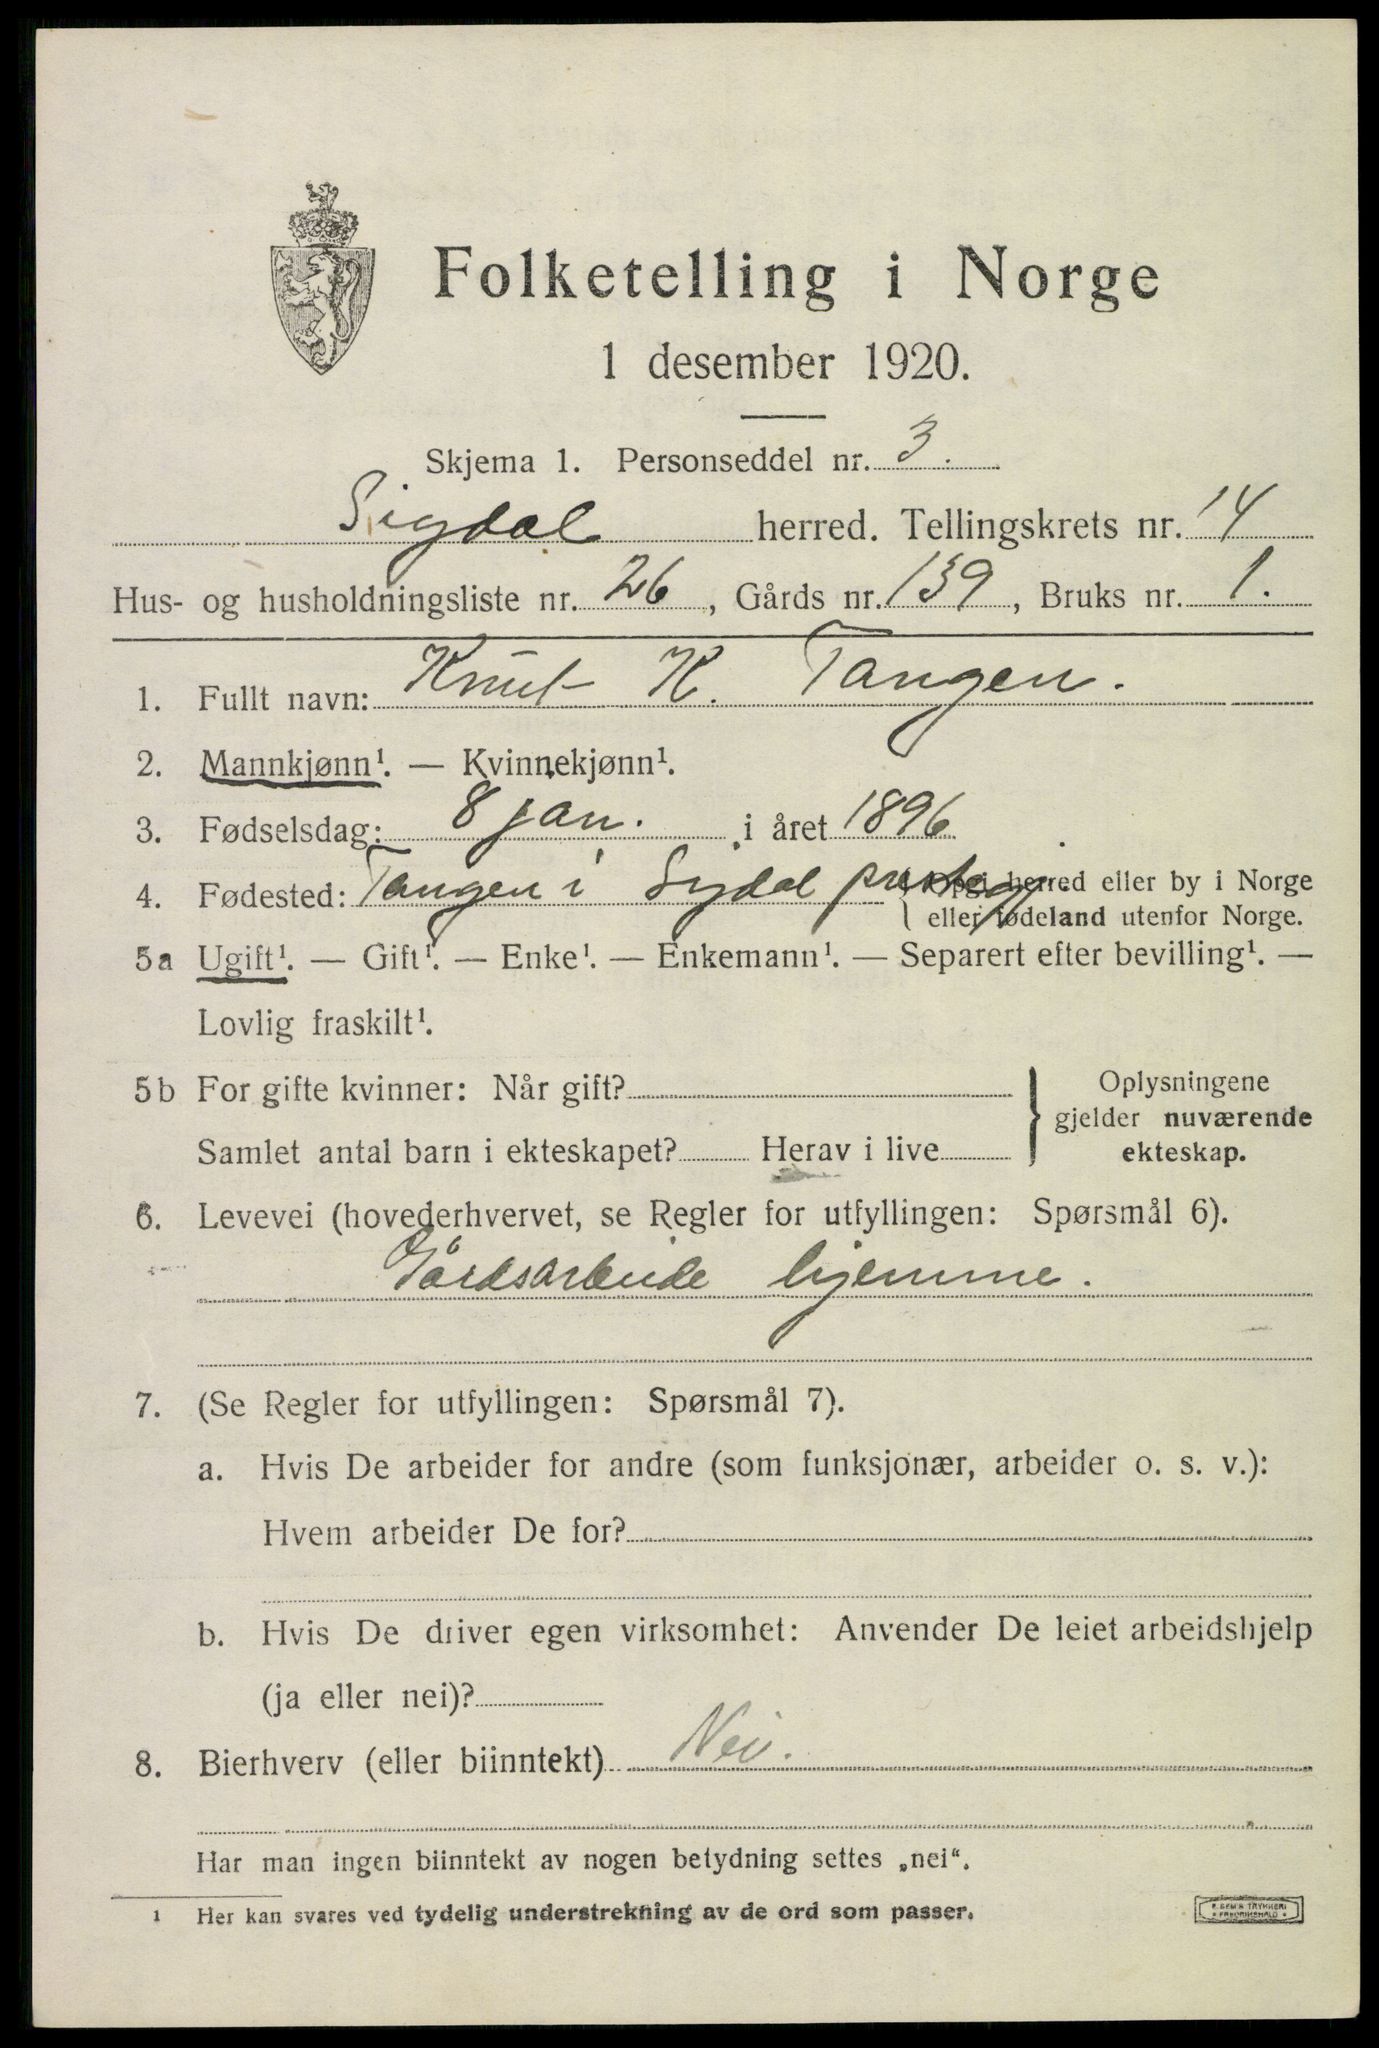 Folketelling i Norge
1 desember 1920.
Skjema 1. Personseddel nr. 3.
Sigdal herred. Tellingskrets nr. 14
Hus- og husholdningsliste nr. 26, Gårds nr. 139, Bruks nr. 1.
1. Fullt navn: Knut K. Tangen.
2. Mannkjønn¹. — Kvinnekjønn¹.
3. Fødselsdag: 8 jan. i året 1896
4. Fødested: Tangen i Sigdal prestegj. Opgi herred eller by i Norge
eller fødeland utenfor Norge.
5a Ugift¹. — Gift¹. — Enke¹. — Enkemann¹. — Separert efter bevilling¹. —
Lovlig fraskilt¹.
5b For gifte kvinner: Når gift?
Samlet antal barn i ekteskapet? Herav i live
Oplysningene
gjelder nuværende
ekteskap.
6. Levevei (hovederhvervet, se Regler for utfyllingen: Spørsmål 6).
Gårdsarbeide hjemme.
7. (Se Regler for utfyllingen: Spørsmål 7).
a. Hvis De arbeider for andre (som funksjonær, arbeider o. s. v.):
Hvem arbeider De for?
b. Hvis De driver egen virksomhet: Anvender De leiet arbeidshjelp
(ja eller nei)?
8. Bierhverv (eller biinntekt) Nei.
Har man ingen biinntekt av nogen betydning settes „nei“.
1 Her kan svares ved tydelig understrekning av de ord som passer.
E. SEM'S TRYKKERI
FREDRIKSHALD